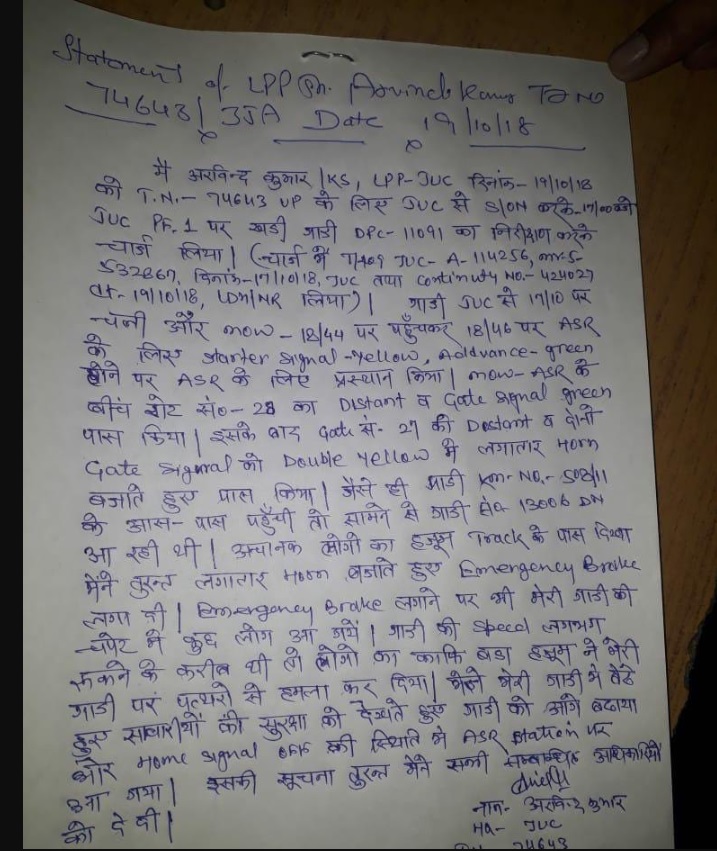 Statement of LPP Sh. Arvind Kumar TR NO
74643 / JJA Date 19/10/18
मै अरविन्द कुमार /KS, LPP-JUC दिनांक- 19/10/18
को T.N.- 74643 UP के लिए JUC से S/ON करके-17/00 बजे
JUC PF.1 पर खडी गाडी DPC-11091 का निरीक्षण करके
चार्ज लिया। (चार्ज में JUC-A-114256,
532867, दिनांक-17/10/18, JUC तथा Continuty NO.- 424027
dt-19/10/18, LDH/NR लिया)। गाडी JUC से 17/10 पर
चली और mow-18/44 पर पहुँचकर 18/46 पर ASR
के लिए starter signal-yellow, Addvance-green
होने पर ASR के लिए प्रस्थान किया। mow-ASR के
बीच गेट सं०-28 का Distant व Gate signal green
पास किया। इसके बाद Gate सं-27 की Distant व दोनो
Gate signal को Double Yellow में लगातार Horn
बजाते हुए पास किया। जैसे ही गाडी Km-No.-508/11
के आस-पास पहुँची तो सामने से गाडी सं० 13006 DN
आ रही थी। अचानक लोगो का हजूम Track के पास दिखा
मैंने तुरन्त लगातार Horn बजाते हुए Emergency Brake
लगा दी। Emergency Brake लगाने पर भी मेरी गाडी की
चपेट मे कुछ लोग आ गये। गाडी की speed लगभग
रुकने के करीब थी तो लोगो का काफि बडा हजूम ने मेरी
गाडी पर पत्थरो से हमला कर दिया। मैने मेरी गाडी मे बैठे
हुए सावारीयों की सुरक्षा को देखते हुए गाडी को आगे बढाया
और Home signal OFF की स्थिति में ASR station पर
आ गया। इसकी सूचना तुरन्त मैंने सभी सम्बन्धित अधिकारियों
को दे दी।
नाम- अरविन्द कुमार
HQ- JUC
74643